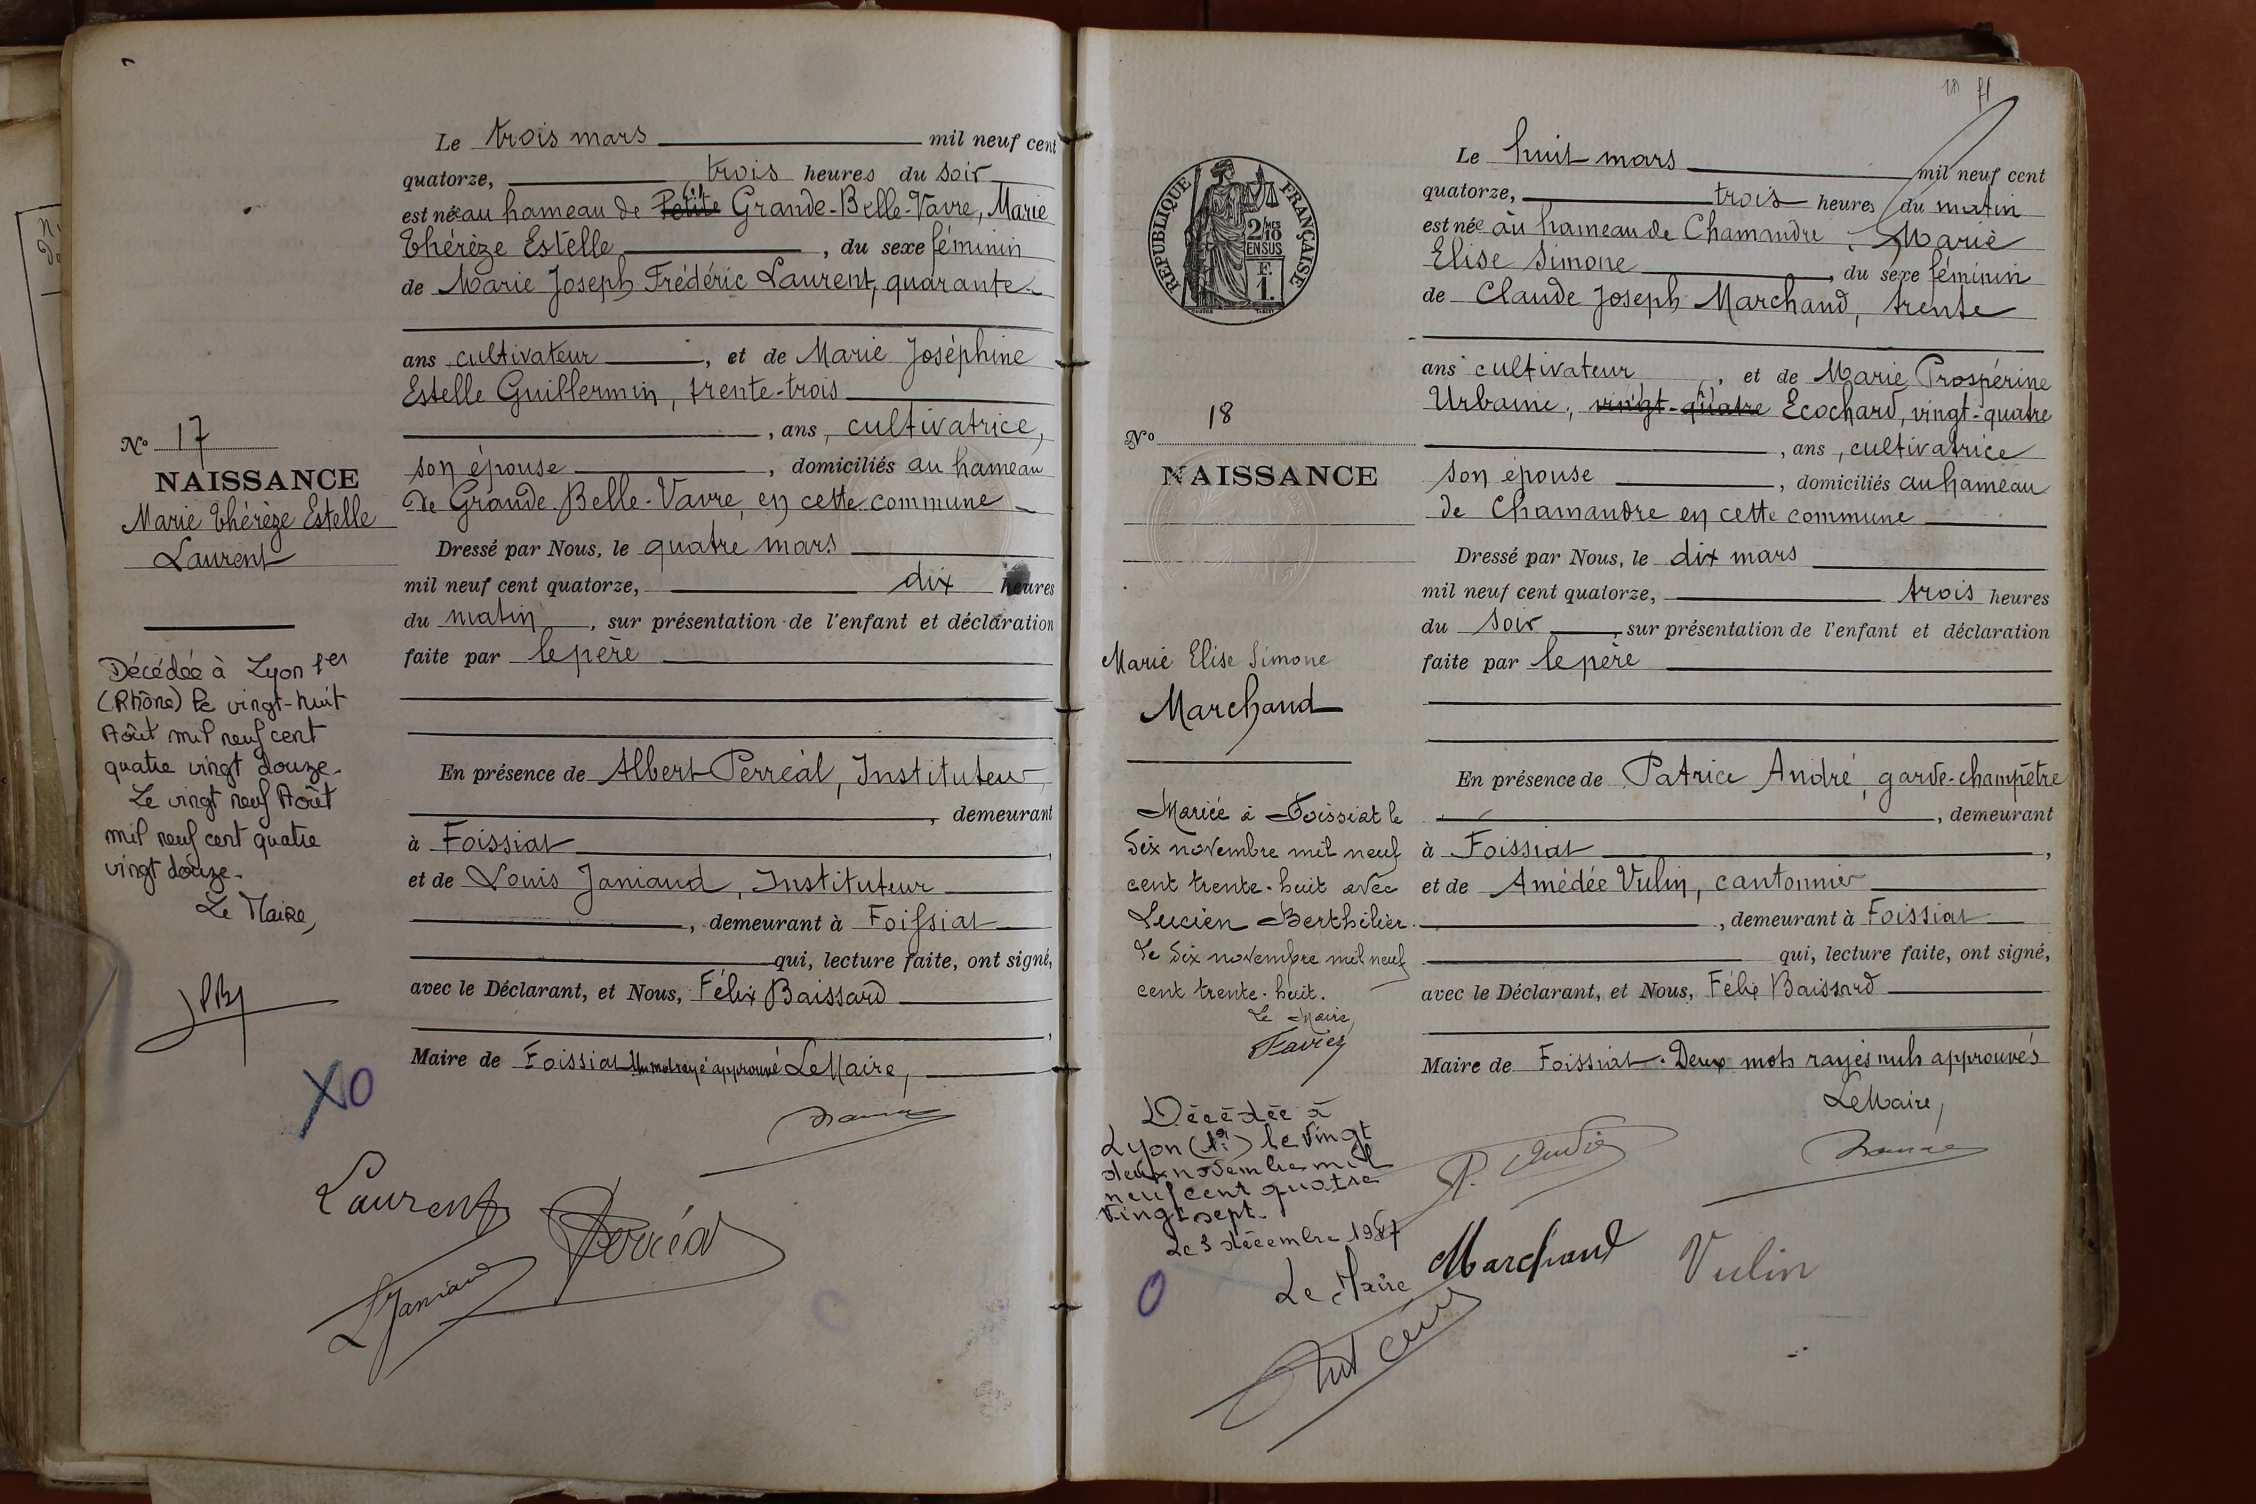 Le trois mars mil neuf cent
quatorze, trois heures du soir
est née au hameau de Petite Grande-Belle-Vavre, Marie
Thérèze Estelle , du sexe féminin
de Marie Joseph Frédéric Laurent, quarante
ans cultivateur , et de Marie Joséphine
Estelle Guillermin, trente-trois
, ans, cultivatrice,
son épouse , domiciliés au hameau
de Grande Belle-Vavre, en cette commune
Dressé par Nous, le quatre mars
mil neuf cent quatorze, dix heures
du matin , sur présentation de l'enfant et déclaration
faite par le père
En présence de Albert Perréal, Instituteur
, demeurant
à Foissiat ,
et de Louis Janiaud, Instituteur
, demeurant à Foissiat
qui, lecture faite, ont signé,
avec le Déclarant, et Nous, Félix Baissard
,
Maire de Foissiat Un mot rayé approuvé Le Maire,
Laurent
Perréal
L Janiaud
No 17
NAISSANCE
Marie Thérèze Estelle
Laurent
Décédée à Lyon 1er
(Rhône) le vingt-huit
Août mil neuf cent
quatre vingt douze.
Le vingt neuf Août
mil neuf cent quatre
vingt douze.
Le Maire,
XO
18
Le huit mars mil neuf cent
quatorze, trois heures du matin
est née au hameau de Chamandre, Marie
Elise Simone , du sexe féminin
de Claude Joseph Marchand, trente
ans cultivateur , et de Marie Prospérine
Urbanie, vingt-quatre Ecochard, vingt-quatre
, ans, cultivatrice
son épouse , domiciliés au hameau
de Chamandre en cette commune
Dressé par Nous, le dix mars
mil neuf cent quatorze, trois heures
du soir , sur présentation de l'enfant et déclaration
faite par le père
En présence de Patrice André, garde-champêtre
, demeurant
à Foissiat ,
et de Amédée Vulin, cantonnier
, demeurant à Foissiat
qui, lecture faite, ont signé,
avec le Déclarant, et Nous, Félix Baissard
Maire de Foissiat. Deux mots rayés nuls approuvés
Le Maire,
P. André
Marchand
Vulin
RÉPUBLIQUE FRANÇAISE
2/10
EN SUS
F.
1.
No 18
NAISSANCE
Marie Elise Simone
Marchand
Mariée à Foissiat le
dix novembre mil neuf
cent trente-huit avec
Lucien Berthilier.
Le dix novembre mil neuf
cent trente-huit.
Le Maire,
Décédée à
Lyon (1er) le vingt
deux novembre mil
neuf cent quatre
vingt sept.
Le 3 décembre 1987
Le Maire
O